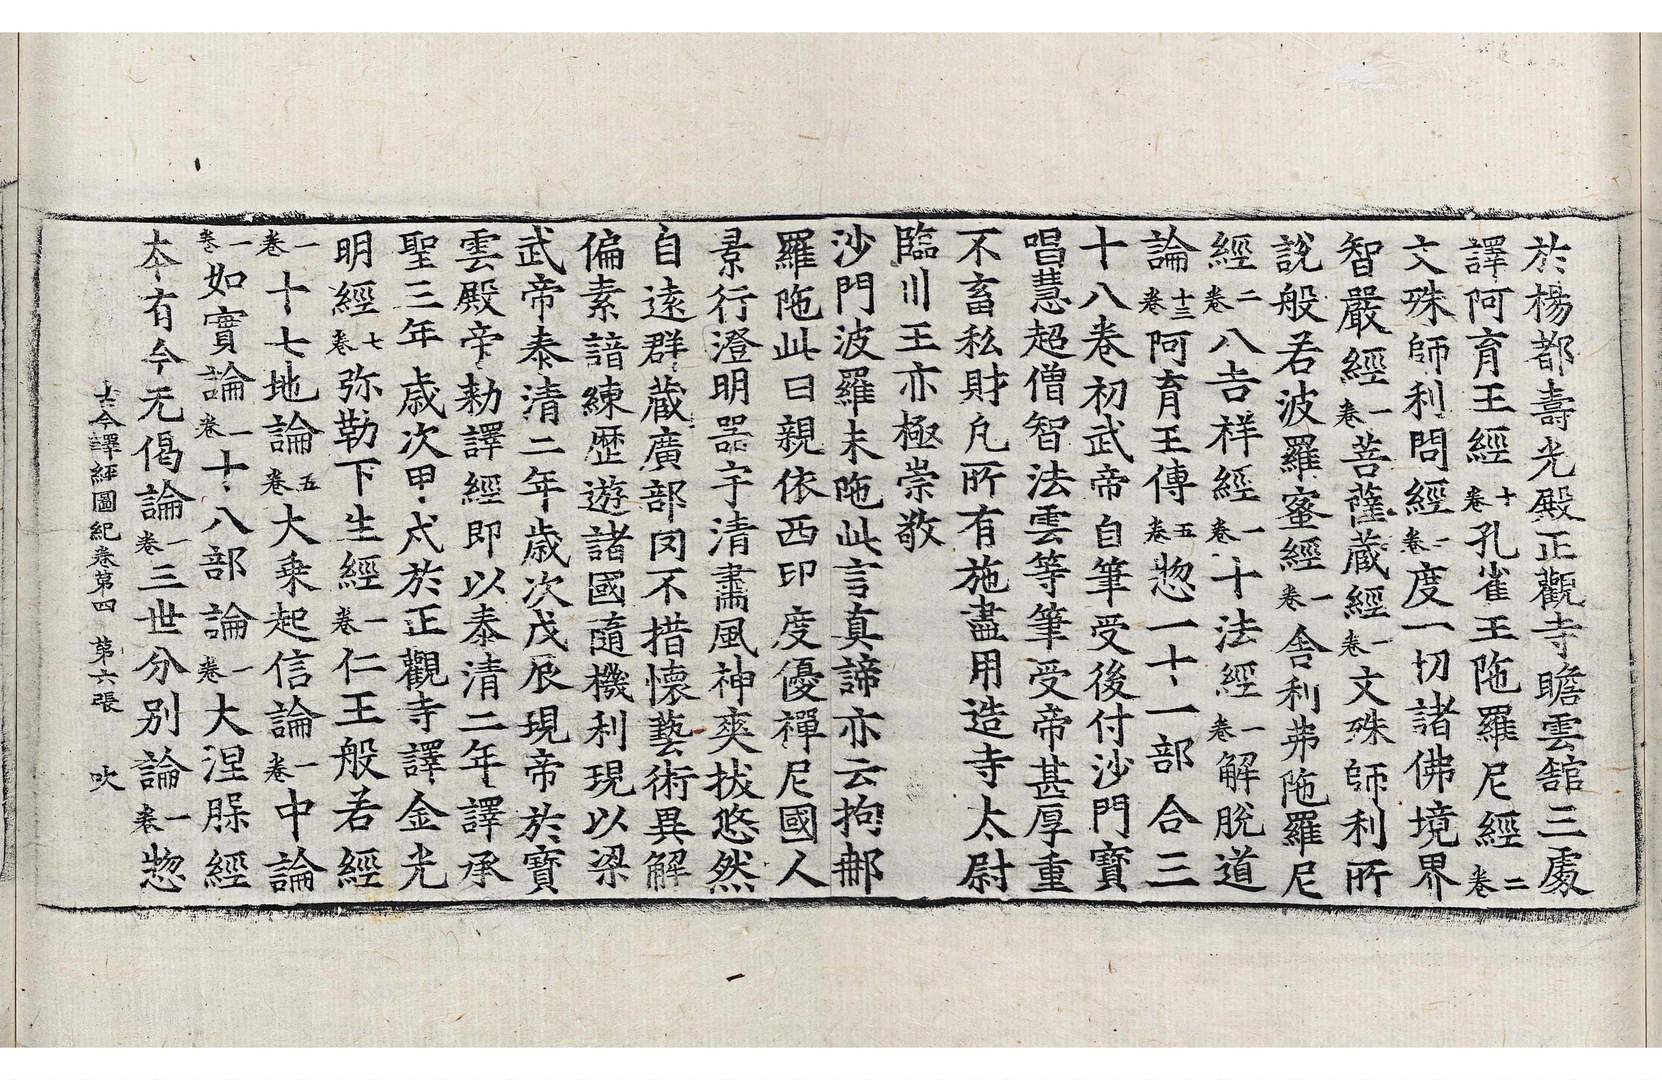 於楊都壽光殿正觀寺瞻雲舘三處
譯阿育王經十卷孔雀王陁羅尼經二卷
文殊師利問經一卷度一切諸佛境界
智嚴經一卷菩薩蔵經一卷文殊師利所
說般若波羅蜜經一卷舍利弗陁羅尼
經二卷八吉祥經一卷十法經一卷解脫道
論十三卷阿育王傳五卷惣一十一部合三
十八卷初武帝自筆受後付沙門寶
唱慧超僧智法雲等筆受帝甚厚重
不畜私財凡所有施盡用造寺太尉
臨川王亦極崇敬
沙門波羅末陁此言真諦亦云拘郍
羅陁此曰親依西印度優禪尼國人
景行澄明器宇清肅風神爽拔悠然
自遠群蔵廣部罔不措懷藝術異解
偏素諳練歷遊諸國隨機利現以梁
武帝泰清二年歲次戊辰現帝於寶
雲殿帝勑譯經即以泰清二年譯承
聖三年歲次甲戌於正觀寺譯金光
明經七卷弥勒下生經一卷仁王般若經
一卷十七地論五卷大乗起信論一卷中論
一卷如實論一卷十八部論一卷大涅槃經
本有今无偈論一卷三世分別論一卷惣
古今譯經圖紀卷第四 第六張 吹